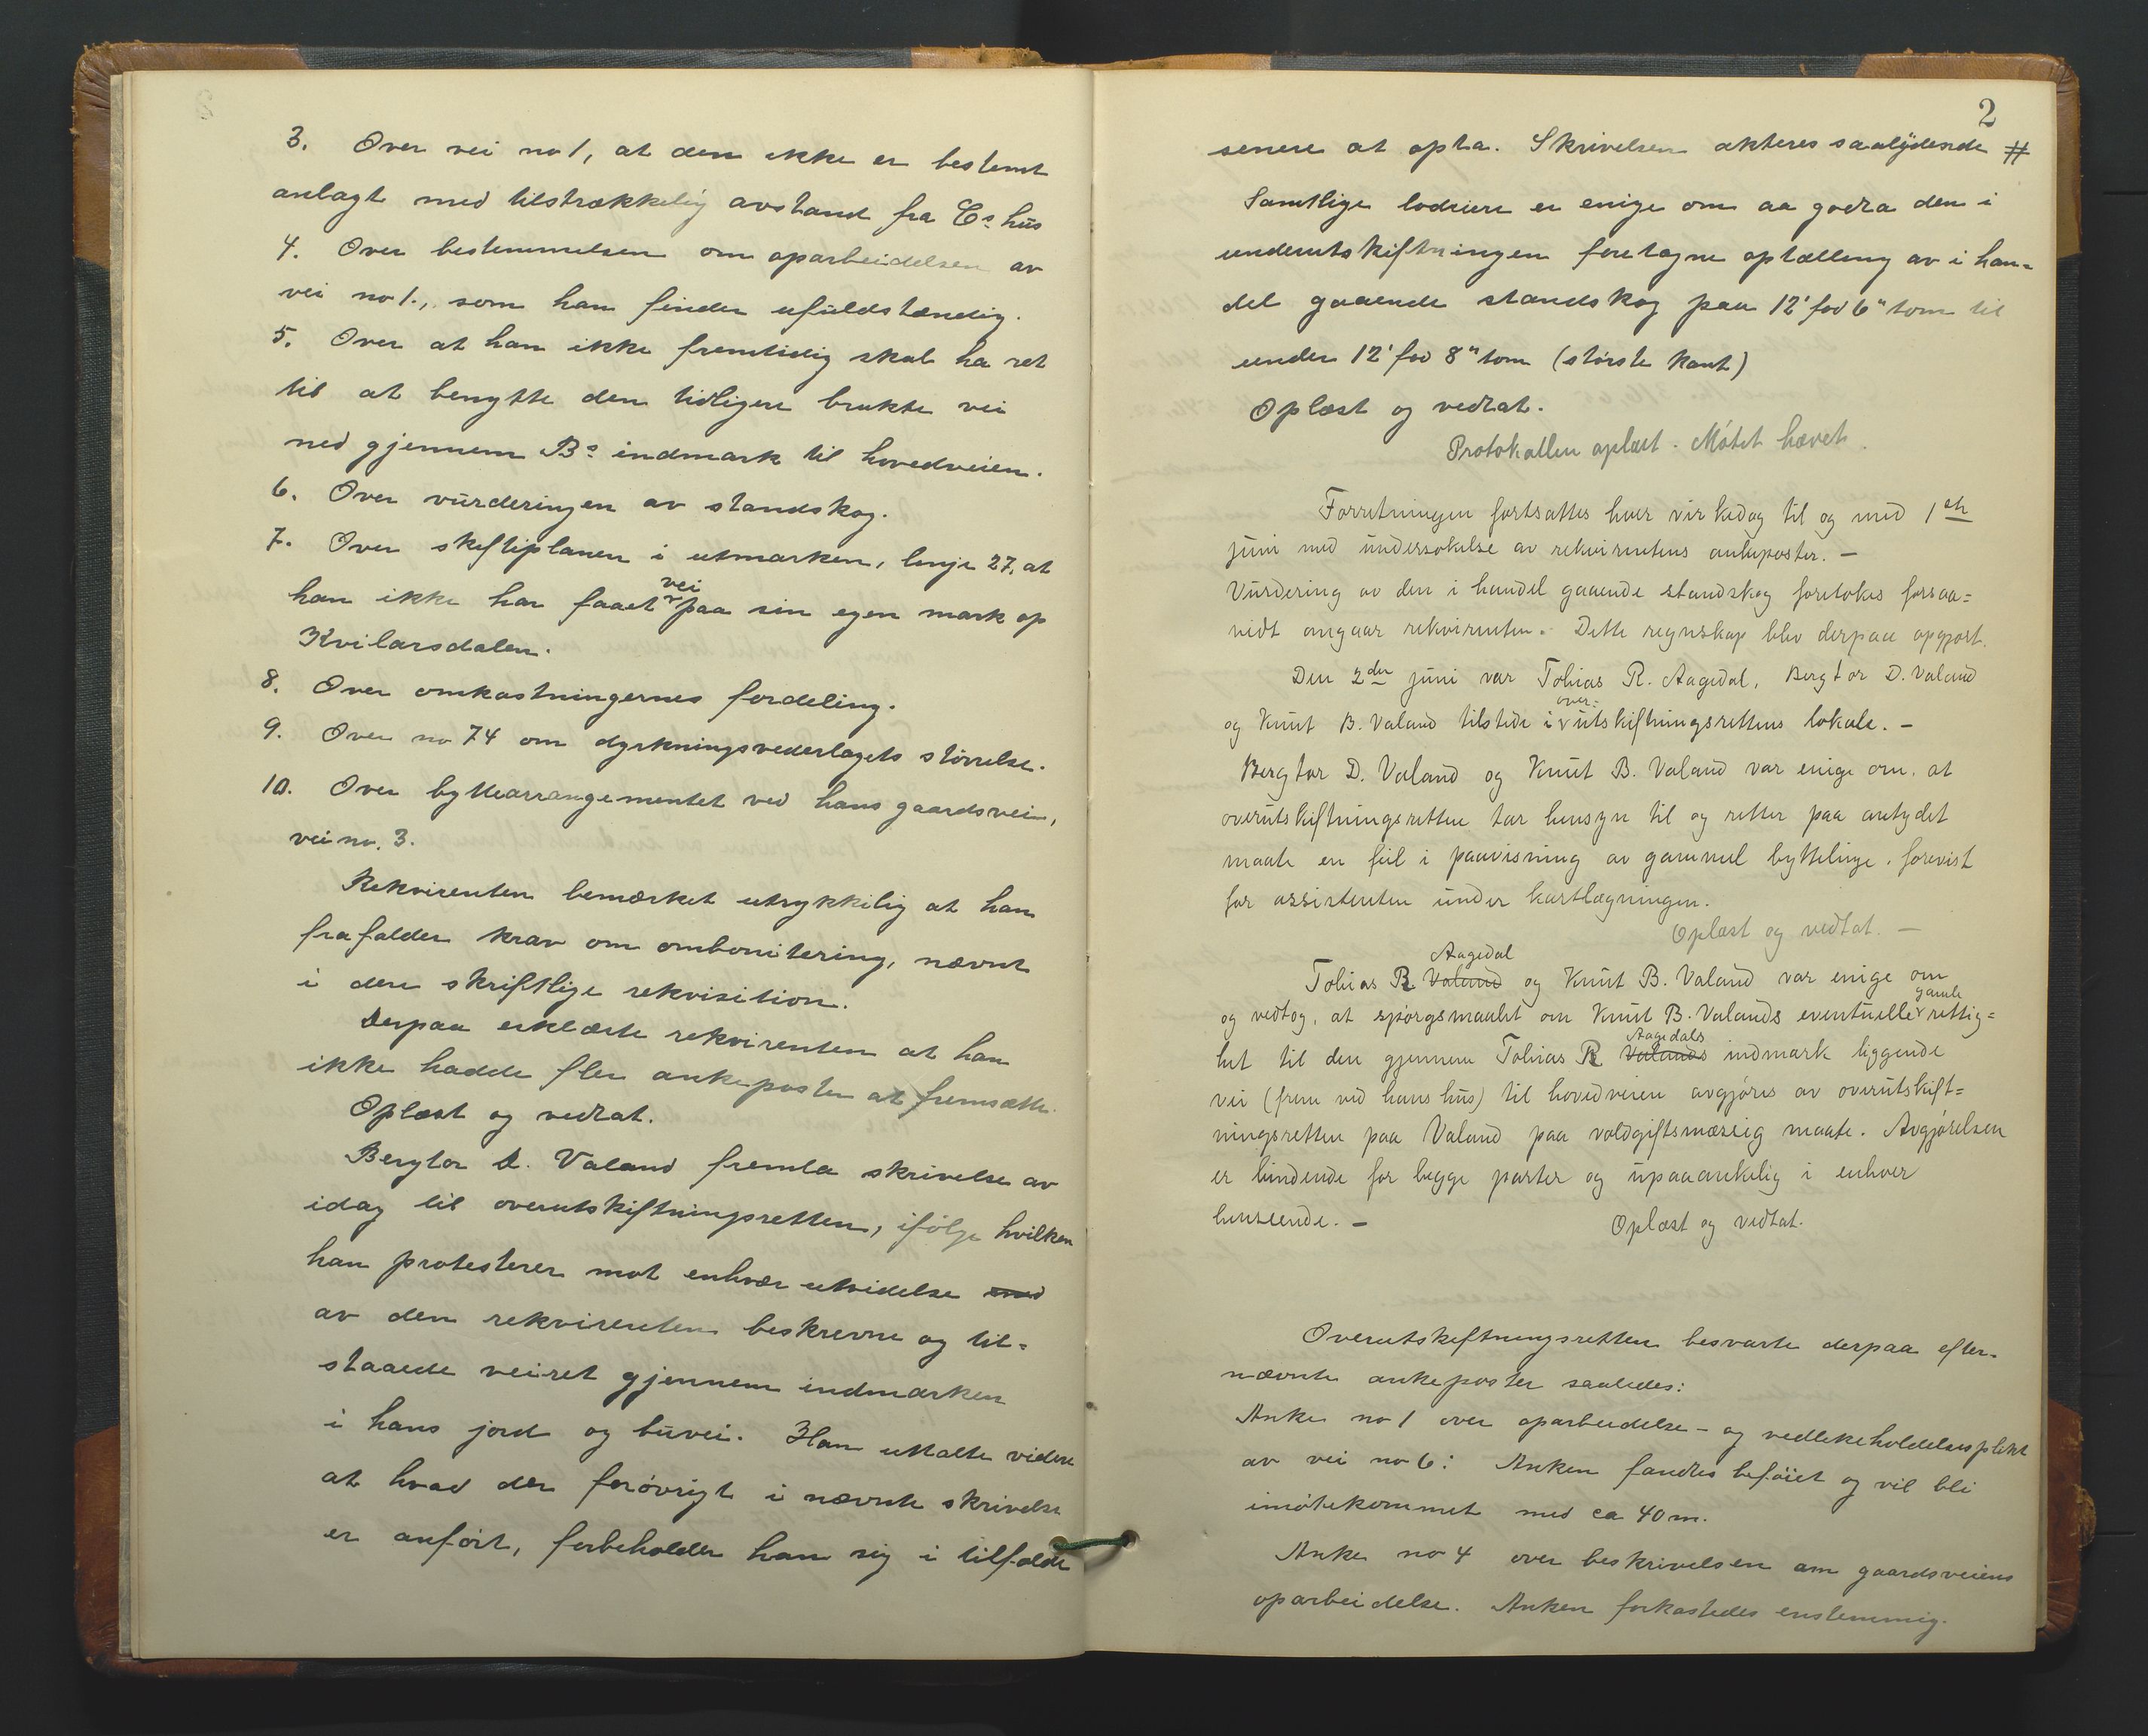 3. Over vei no 1, at den ikke er bestemt
anlagt med tilstrækkelig avstand fra Cs hus
4. Over bestemmelsen om oparbeidelsen av
vei no 1., som han finder ufuldstændig.
5. Over at han ikke fremtidig skal ha ret
til at benytte den tidligere brukte vei
ned gjennem Bs indmark til hovedveien.
6. Over vurderingen av standskog.
7. Over skifteplanen i utmarken, linje 27, at
han ikke har faaet vei paa sin egen mark op
Kvilarsdalen.
8. Over omkastningernes fordeling.
9. Over no 74 om dyrkningsvederlagets størrelse.
10. Over byttearrangementet ved hans gaardsvei,
vei no. 3.
Rekvirenten bemærket utrykkelig at han
frafalder krav om ombonitering, nævnt
i den skriftlige rekvisition.
Derpaa erklærte rekvirenten at han
ikke hadde fler ankeposter at fremsætte.
Oplæst og vedtat.
Bergtor D. Valand fremla skrivelse av
idag til overutskiftningsretten, ifølge hvilken
han protesterer mot enhver utvidelse med
av den rekvirenten beskrevne og til-
staaede veiret gjennem indmarken
i hans jord og buvei. Han uttalte videre
at hvad der forøvrigt i nævnte skrivelse
er anført, forbeholder han sig i tilfælde
2
senere at opta. Skrivelsen akteres saalydende #
Samtlige lodeiere er enige om aa godta den i
underutskiftningen foretagne optælling av i han-
del gaaende standskog paa 12' fod 6" tom til
under 12' fod 8" tom (største kant)
Oplæst og vedtat.
Protokollen oplæst. Møtet hævet.
Forretningen fortsattes hver virkedag til og med 1ste
juni med undersøkelse av rekvirentens ankeposter. —
Vurdering av den i handel gaaende standskog foretokes forsaa-
vidt angaar rekvirenten. Dette regnskap blev derpaa opgjort.
Den 2den juni var Tobias R. Aagedal, Bergtor D. Valand
og Knut B. Valand tilstede i over-utskiftningsrettens lokale. —
Bergtor D. Valand og Knut B. Valand var enige om, at
overutskiftningsretten tar hensyn til og retter paa antydet
maate en feil i paavisning av gammel byttelinje, forevist
for assistenten under kartlægningen.
Oplæst og vedtat. —
Tobias R Valand Aagedal og Knut B. Valand var enige om
og vedtog, at spørgsmaalet om Knut B. Valands eventuelle gamle rettig-
het til den gjennem Tobias R Valands Aagedals indmark liggende
vei (frem ved hans hus) til hovedveien avgjøres av overutskift-
ningsretten paa Valand paa voldgiftsmæssig maate. Avgjørelsen
er bindende for begge parter og upaaankelig i enhver
henseende. — Oplæst og vedtat.
Overutskiftningsretten besvarte derpaa efter-
nævnte ankeposter saaledes:
Anke no 1 over oparbeidelse- og vedlikeholdelsesplikt
av vei no 6: Anken fandtes beføiet og vil bli
imøtekommet med ca 40 m.
Anke no 4 over beskrivelsen om gaardsveiens
oparbeidelse. Anken forkastedes enstemmig.